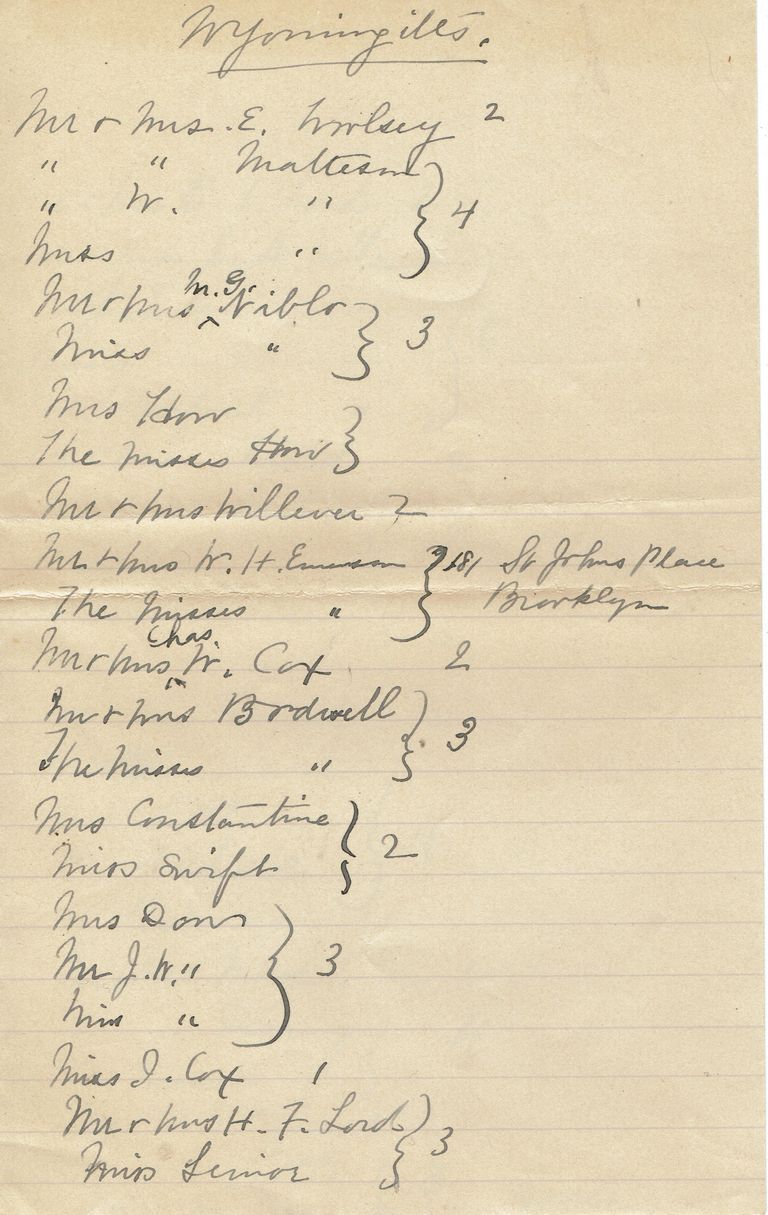 Wyomingites.
Mr & Mrs. E. Wolsey 2
" " Matteson
" W. " } 4
Miss "
Mr & Mrs M. G. Niblo } 3
Miss "
Mrs How
The Misses How }
Mr & Mrs Willever 2
Mr & Mrs W. H. Emerson } 181 St Johns Place
The Misses " Brooklyn
Mr & Mrs Chas. W. Cox 2
Mr & Mrs Bordwell } 3
The Misses "
Mrs Constantine } 2
Miss Swift
Mrs
Mr J. W. " } 3
Miss "
Miss I. Cox 1
Mr & Mrs H. F. Lord } 3
Miss